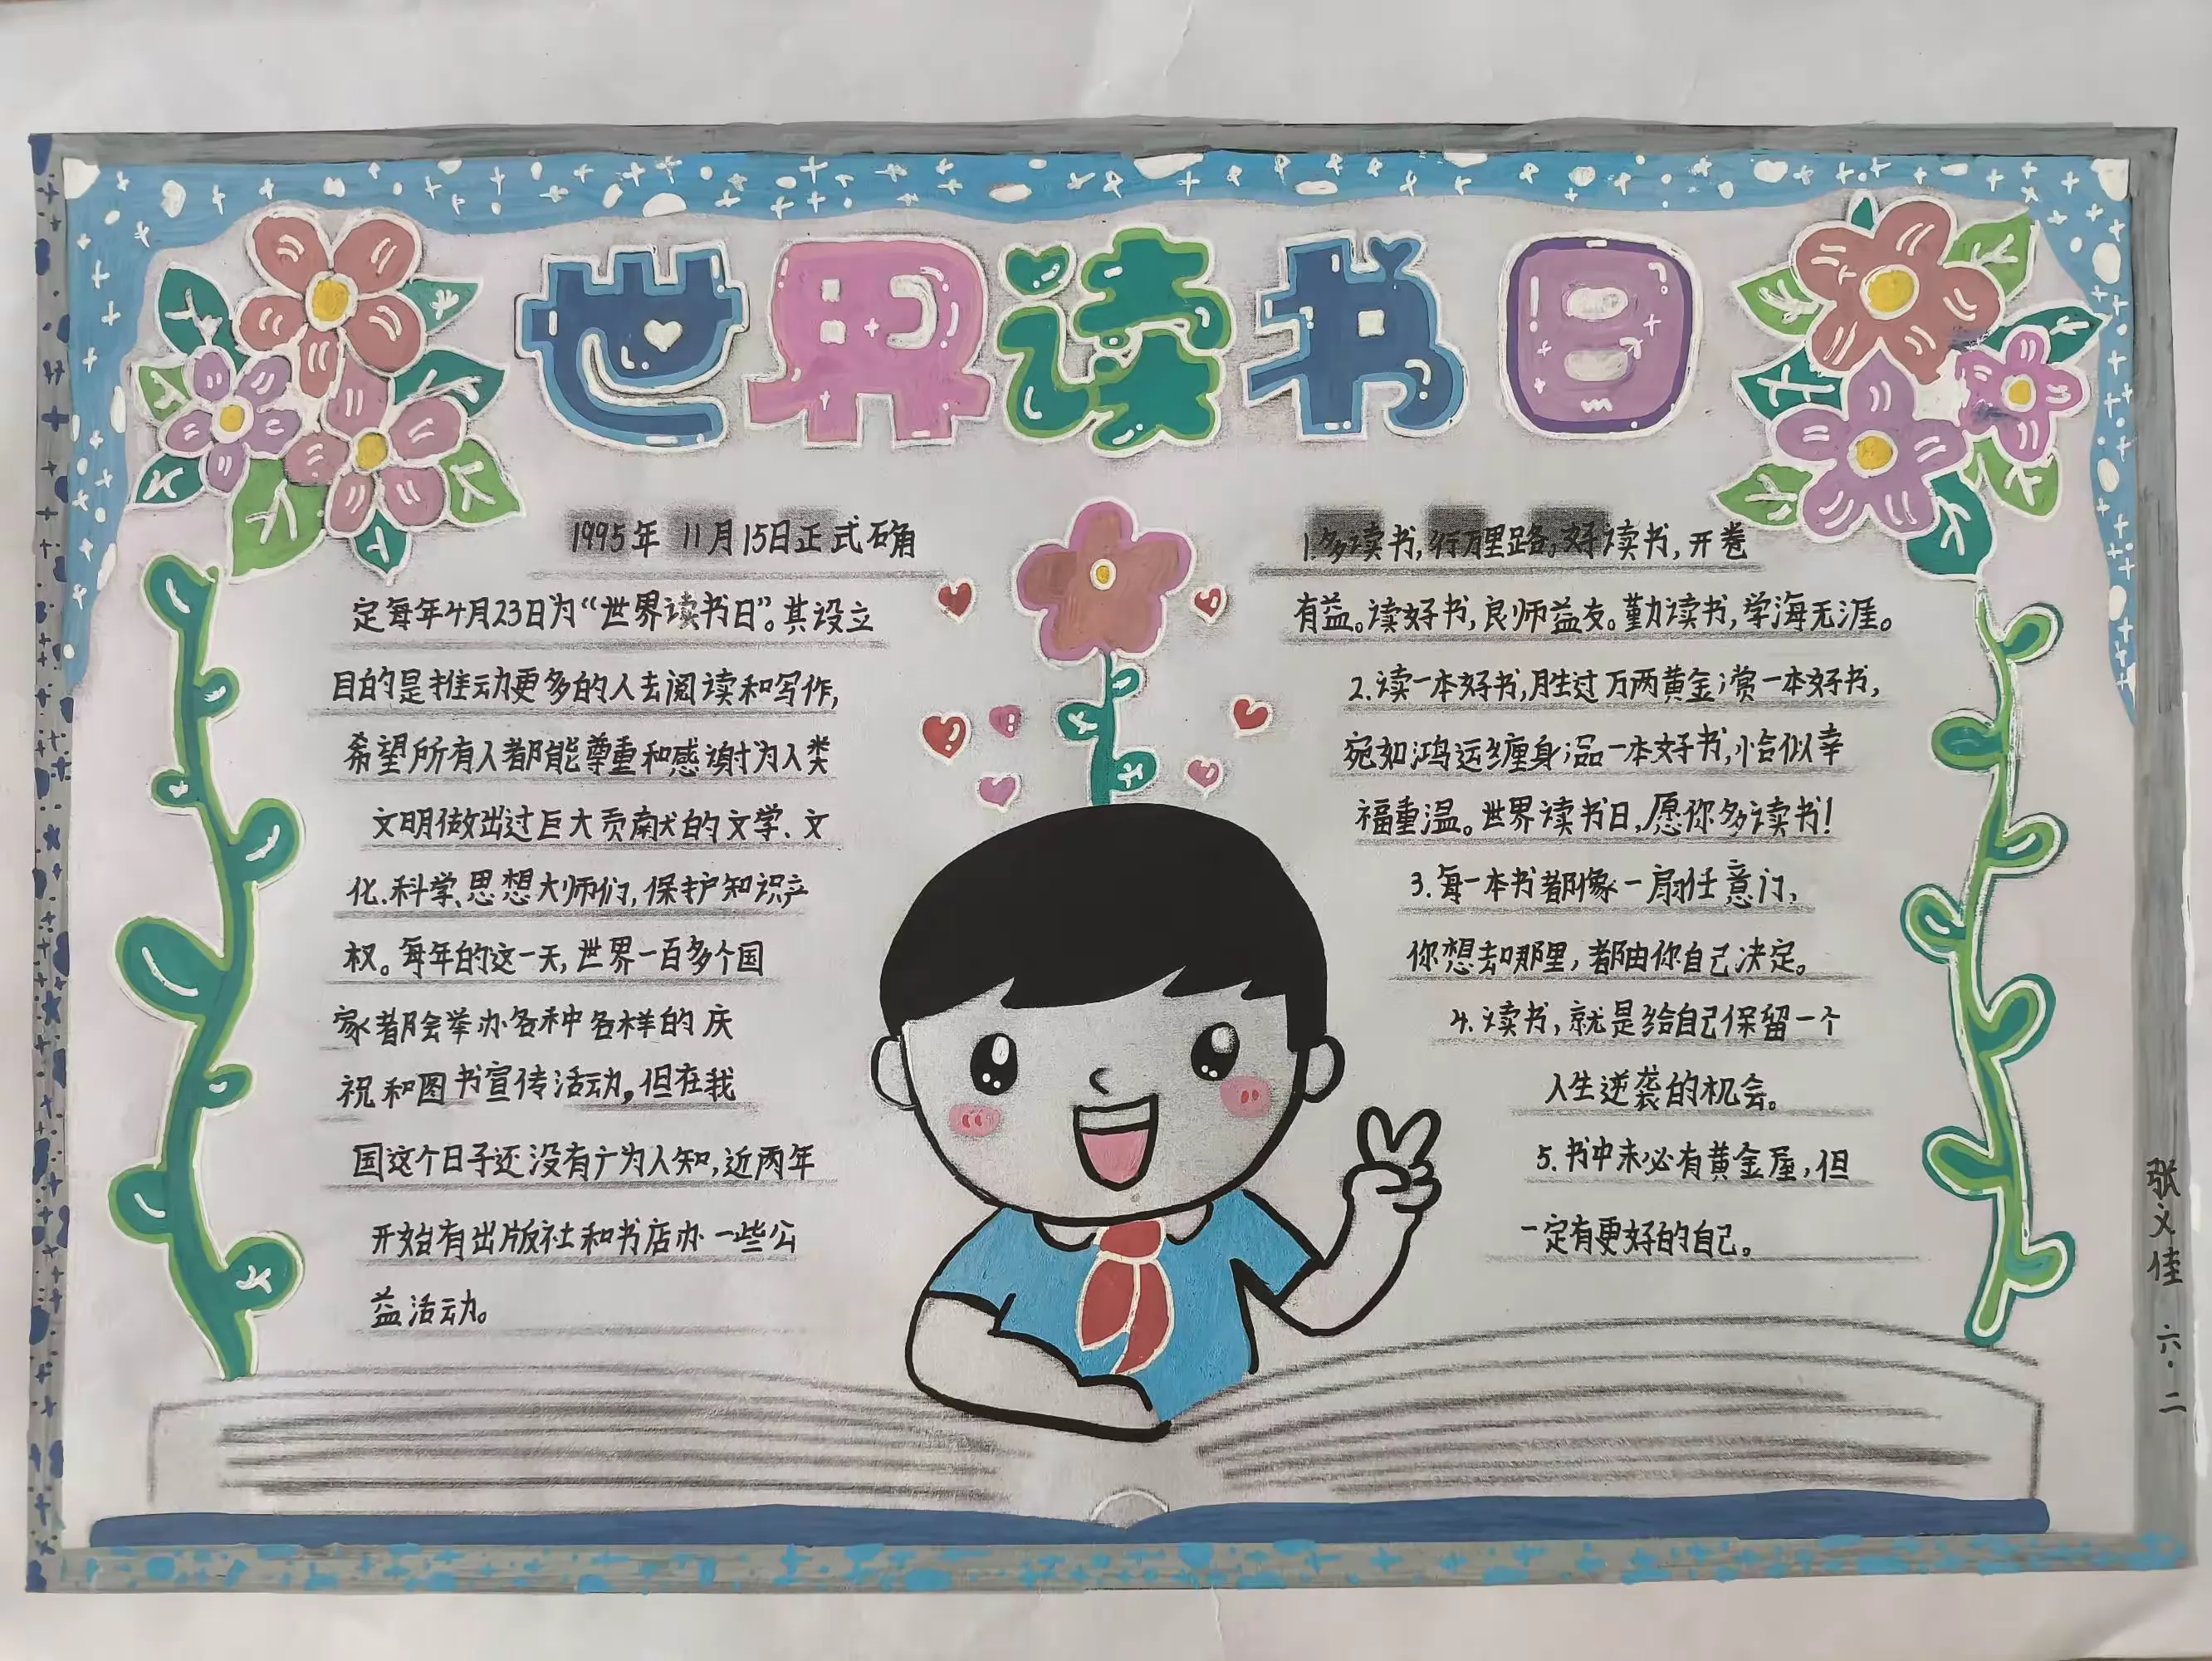 世界读书日
1995年 11月15日正式确
定每年4月23日为“世界读书日”。其设立
目的是推动更多的人去阅读和写作,
希望所有人都能尊重和感谢为人类
文明做出过巨大贡献的文学、文
化、科学、思想大师们,保护知识产
权。每年的这一天,世界一百多个国
家都会举办各种各样的庆
祝和图书宣传活动,但在我
国这个日子还没有广为人知,近两年
开始有出版社和书店办一些公
益活动。
1.多读书,行万里路。好读书,开卷
有益。读好书,良师益友。勤读书,学海无涯。
2.读一本好书,胜过万两黄金;赏一本好书,
宛如鸿运缠身;品一本好书,恰似幸
福重温。世界读书日,愿你多读书!
3.每一本书都像一扇任意门,
你想去哪里,都由你自己决定。
4.读书,就是给自己保留一个
人生逆袭的机会。
5.书中未必有黄金屋,但
一定有更好的自己。
张文佳 六·二